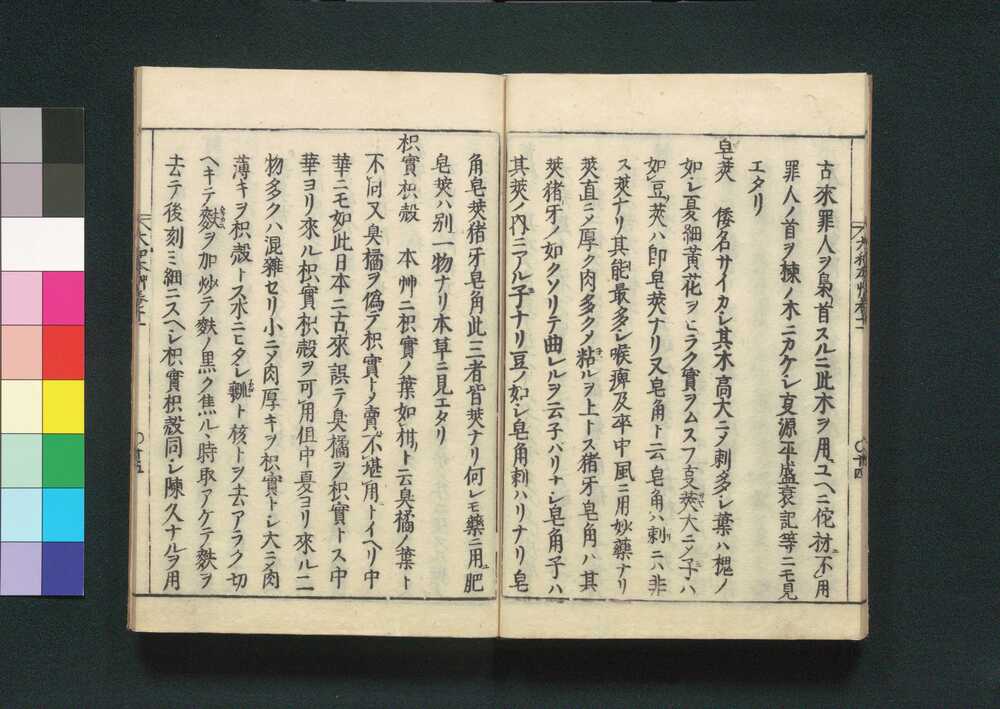 古來罪人ヲ梟首スルニ此木ヲ用ユヘニ佗材不用
罪人ノ首ヲ棟ノ木ニカケシ夏源平盛衰記等ニモ見
エタリ
皂莢 倭名サイカシ其木高大ニ乄刺多シ葉ハ槐ノ
如シ夏細黄花ヲヒラク實ヲムスフ支莢大ニ乄子ハ
如シ豆莢ハ即皂莢ナリ又皂角ト云皂角ハ刺ニハ非
ス莢ナリ其能最多シ喉痺及卒中風ニ用妙藥ナリ
莢直ニ乄厚ク肉多ク乄粘ルヲ上トス猪牙皂角ハ其
莢猪牙ノ如クソリテ曲レルヲ云子バリナシ皂角子ハ
其莢ノ内ニアル子ナリ豆ノ如シ皂角刺ハハリナリ皂
角皂莢猪牙皂角此三者皆莢ナリ何レモ藥ニ用肥
皂莢ハ別一物ナリ本草ニ見エタリ
枳實枳殻 本艸ニ枳實ノ葉如柑ト云臭橘ノ葉ト
不同又臭橘ヲ偽テ枳實ト乄賣不堪用トイヘリ中
華ニモ如此日本ニ古來誤テ臭橘ヲ枳實トス中
華ヨリ來ル枳實枳殻ヲ可用但中夏ヨリ來ルニ
物多クハ混雜セリ小ニ乄肉厚キヲ枳實トシ大ニ乄肉
薄キヲ枳殻トス水ニヒタシ瓤ト核トヲ去アラク切
ヘキテ麩ヲ加炒テ麩ノ黒ク焦ル、時取アケテ麩ヲ
去テ後刻ミ細ニスヘシ枳實枳殻同シ陳久ナルヲ用